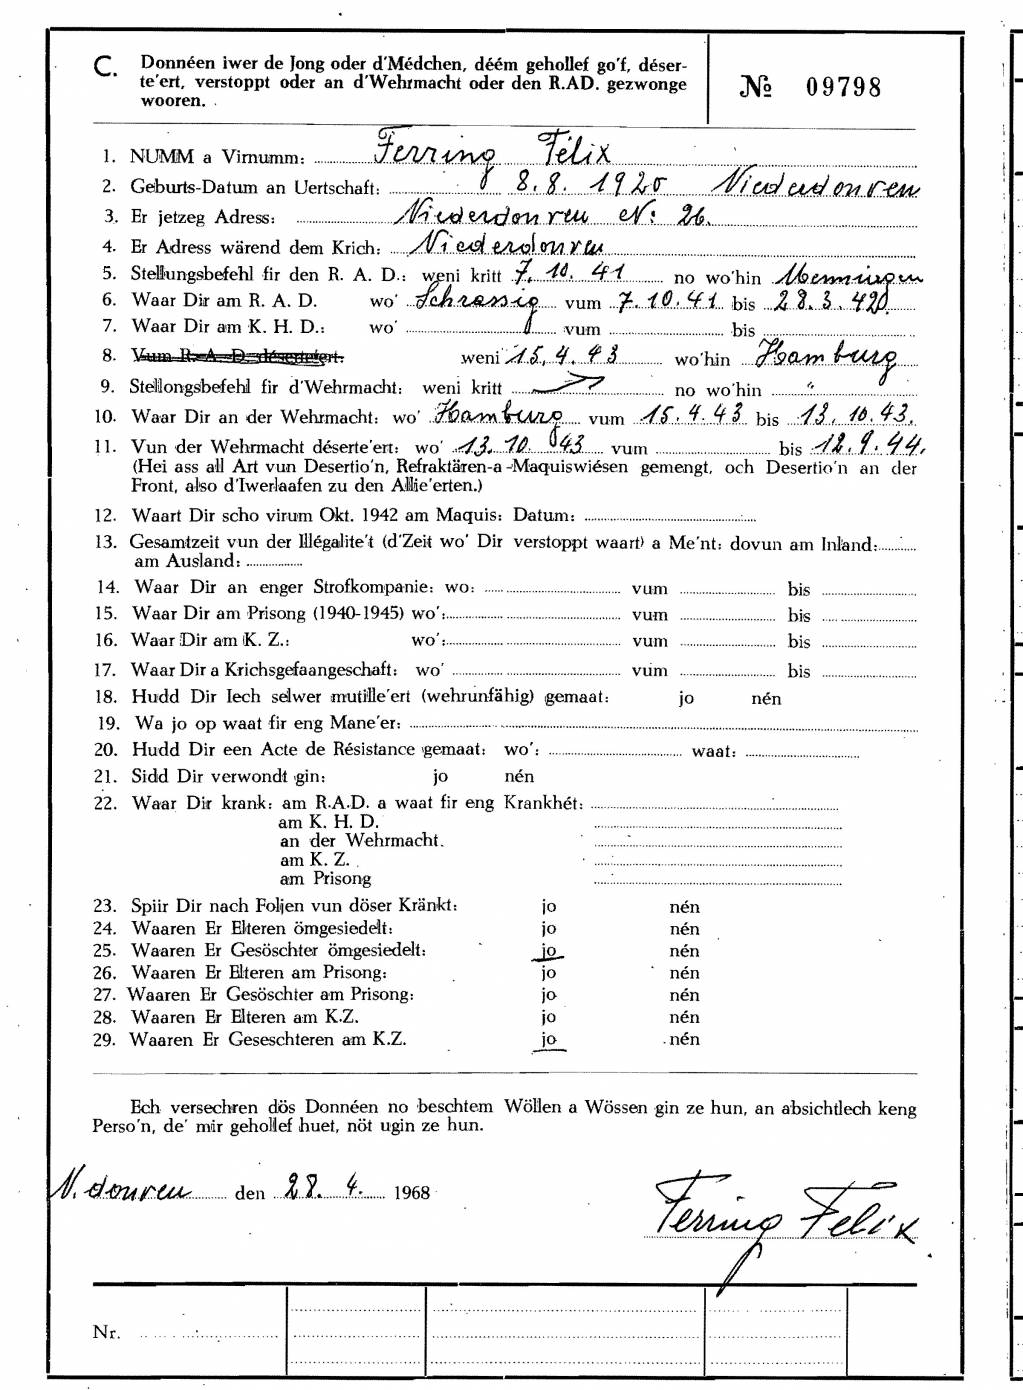 C. Donnéen iwer de Jong oder d'Médchen, déém gehollef go'f, déser-
te'ert, verstoppt oder an d'Wehrmacht oder den R.AD. gezwonge
wooren.
№ 09798
1. NUMM a Virnumm: Ferring Félix
2. Geburts-Datum an Uertschaft: 8.8. 1920 Niederdonven
3. Er jetzeg Adress: Niederdonven No: 26.
4. Er Adress wärend dem Krich: Niederdonven
5. Stellungsbefehl fir den R. A. D.: weni kritt 7. 10. 41 no wo'hin Menningen
6. Waar Dir am R. A. D. wo' Schrassig vum 7.10.41 bis 28.3.42
7. Waar Dir am K. H. D.: wo' vum bis
8. Vum R. A. D. déserte'ert. weni 15.4.43 wo'hin Hamburg
9. Stellongsbefehl fir d'Wehrmacht: weni kritt no wo'hin "
10. Waar Dir an der Wehrmacht: wo' Hamburg vum 15.4.43 bis 13.10.43.
11. Vun der Wehrmacht déserte'ert: wo' 13.10.43 vum bis 12.9.44.
(Hei ass all Art vun Desertio'n, Refraktären-a-Maquiswiésen gemengt, och Desertio'n an der
Front, also d'Iwerlaafen zu den Allie'erten.)
12. Waart Dir scho virum Okt. 1942 am Maquis: Datum:
13. Gesamtzeit vun der Illégalite't (d'Zeit wo' Dir verstoppt waart) a Me'nt: dovun am Inland:
am Ausland:
14. Waar Dir an enger Strofkompanie: wo: vum bis
15. Waar Dir am Prisong (1940-1945) wo': vum bis
16. Waar Dir am K. Z.: wo': vum bis
17. Waar Dir a Krichsgefaangeschaft: wo' vum bis
18. Hudd Dir Iech selwer mutille'ert (wehrunfähig) gemaat: jo nén
19. Wa jo op waat fir eng Mane'er:
20. Hudd Dir een Acte de Résistance gemaat: wo': waat:
21. Sidd Dir verwondt gin: jo nén
22. Waar Dir krank: am R.A.D. a waat fir eng Krankhét:
am K. H. D.
an der Wehrmacht.
am K. Z.
am Prisong
23. Spiir Dir nach Foljen vun döser Kränkt: jo nén
24. Waaren Er Elteren ömgesiedelt: jo nén
25. Waaren Er Gesöschter ömgesiedelt: jo nén
26. Waaren Er Elteren am Prisong: jo nén
27. Waaren Er Gesöschter am Prisong: jo nén
28. Waaren Er Elteren am K.Z. jo nén
29. Waaren Er Geseschteren am K.Z. jo nén
Ech versechren dös Donnéen no beschtem Wöllen a Wössen gin ze hun, an absichtlech keng
Perso'n, de' mir gehollef huet, nöt ugin ze hun.
N.donven den 28. 4. 1968
Ferring Felix
Nr.